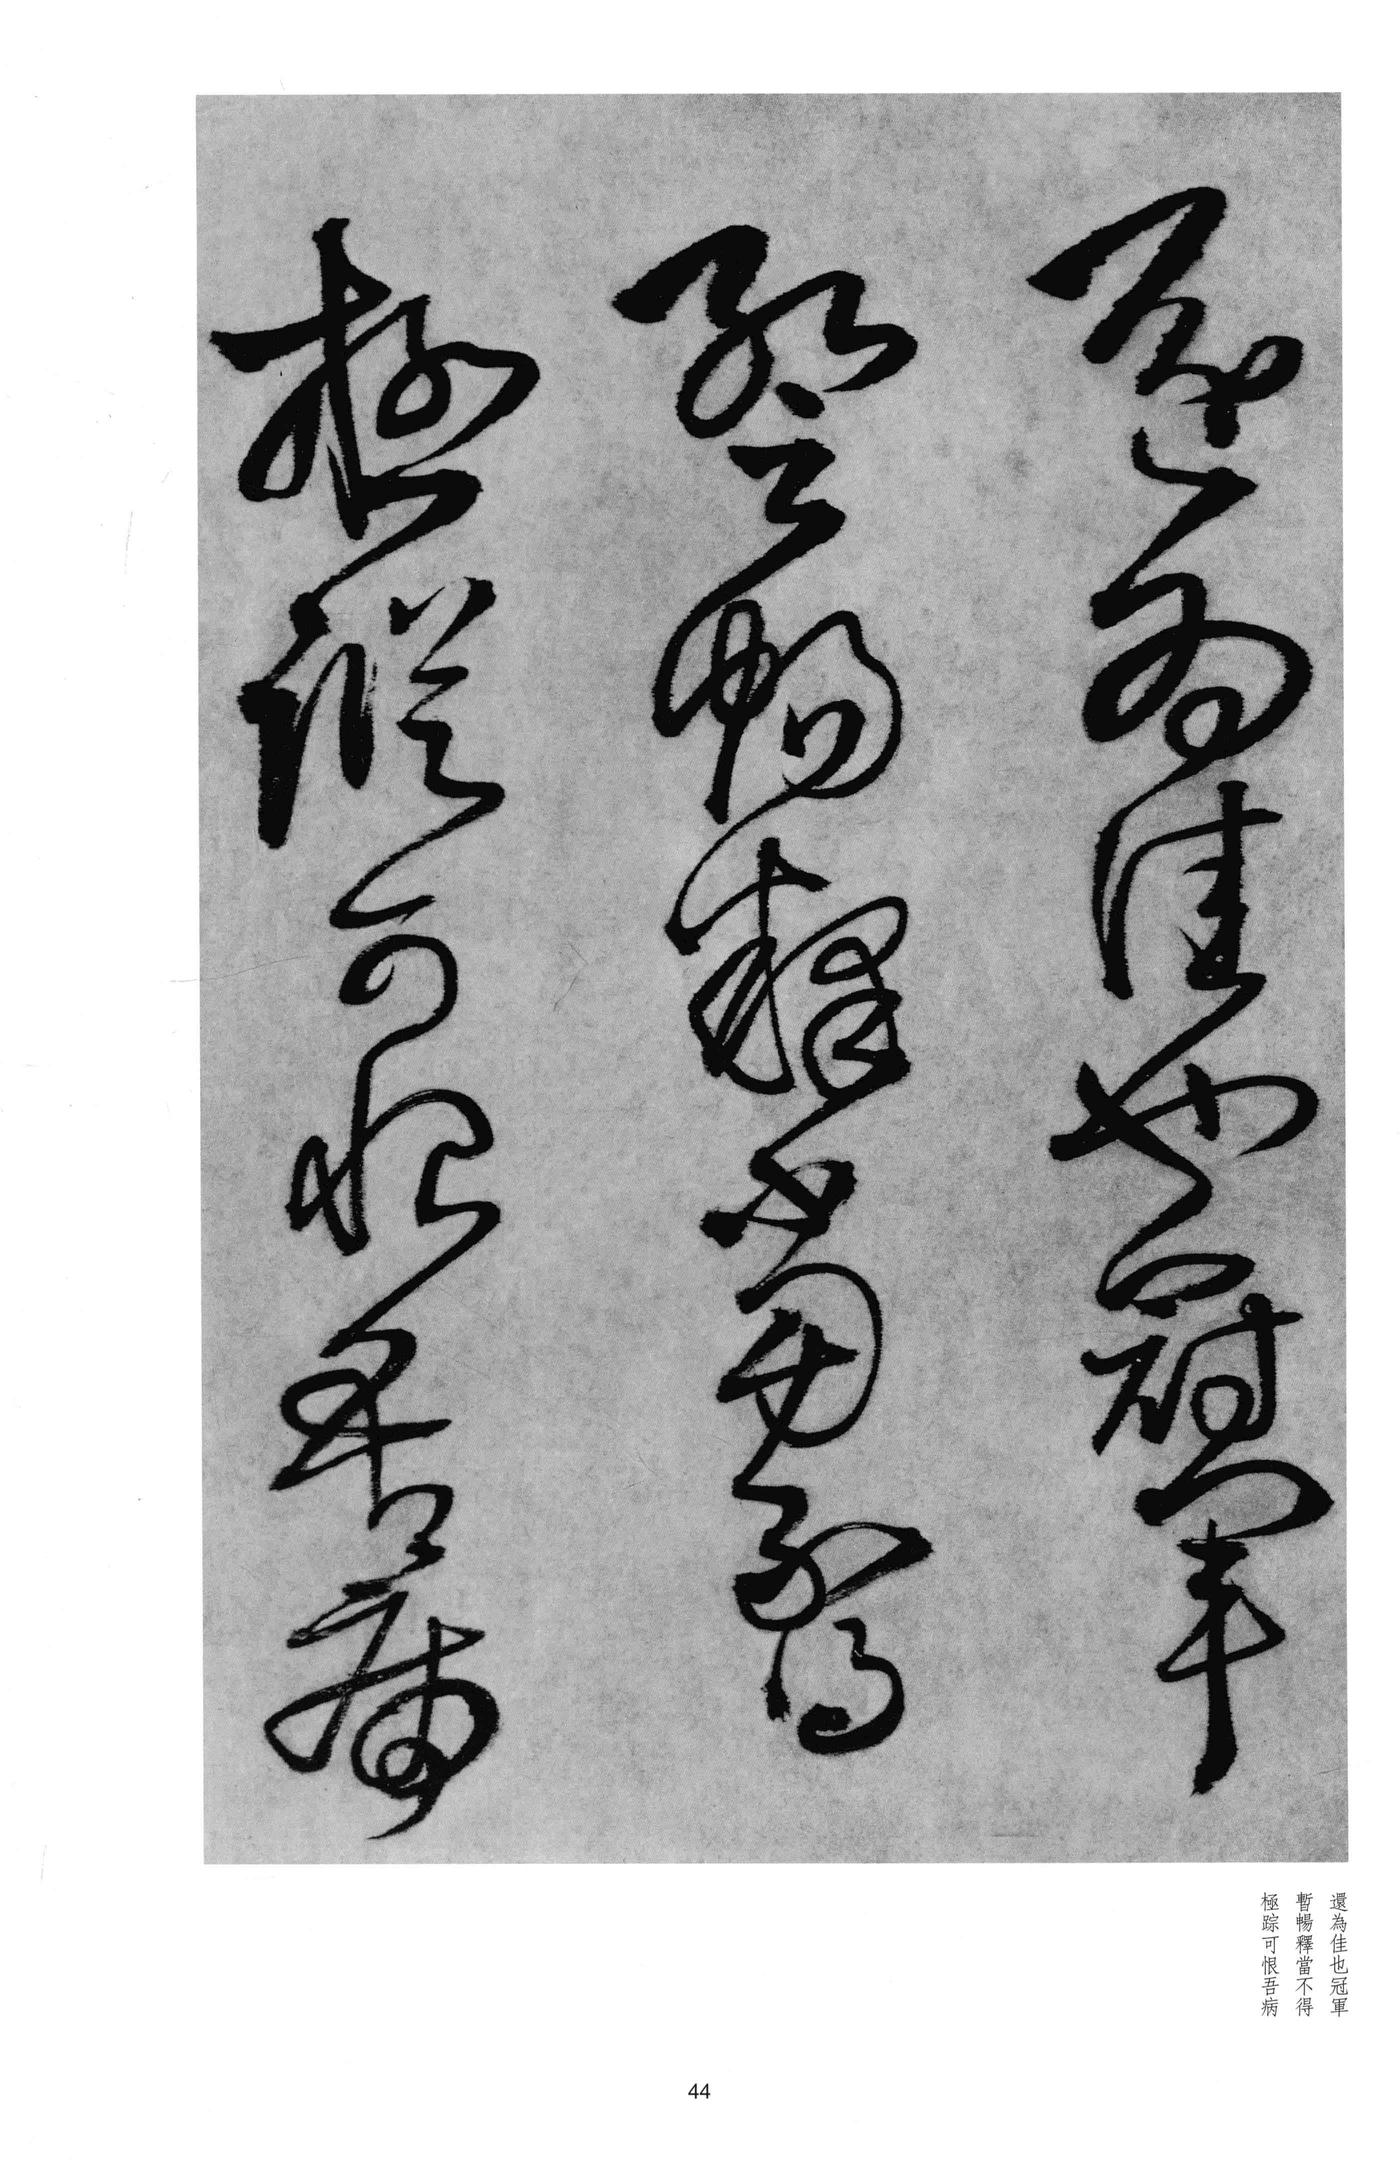 還為佳也冠軍
暫暢釋當不得
極蹤可恨吾病
還為佳也冠軍
暫暢釋當不得
極踪可恨吾病
44